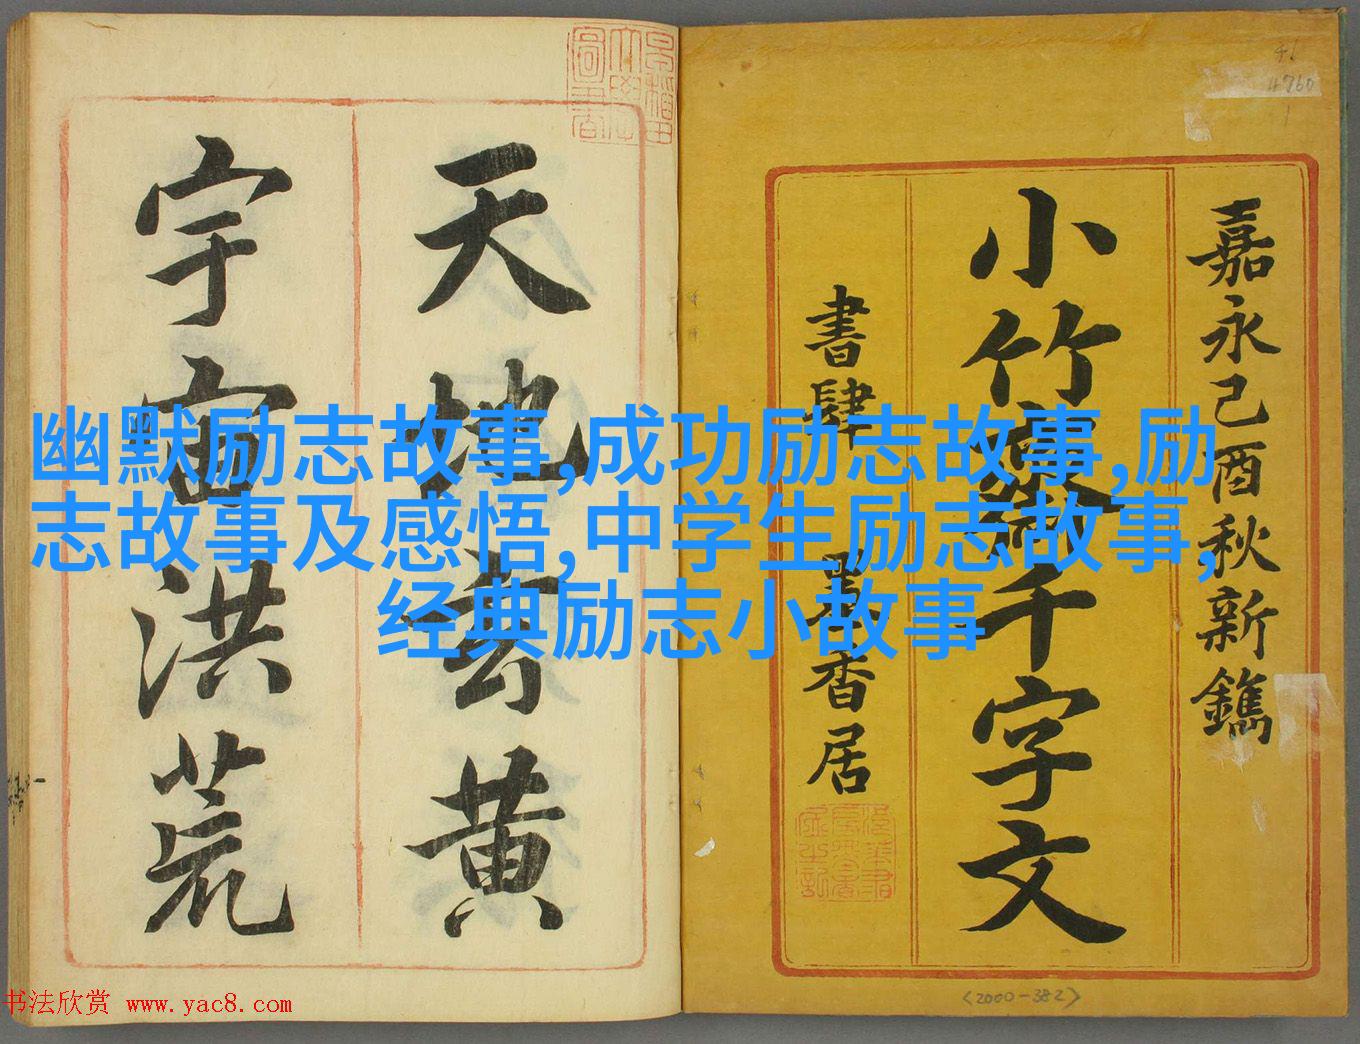 嘉永己酉秋新鐫
小竹齋千字文
書肆 墨香居
天地玄黄
宇宙洪荒
幽默励志故事,成功励志故事,励
志故事及感悟,中学生励志故事,
经典励志小故事
46
4760
<2000-382>
书法欣赏 www.yac8.com